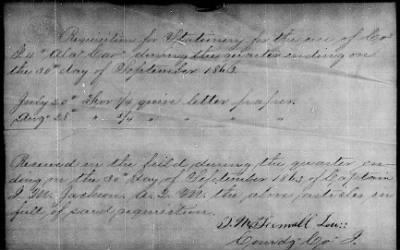 Requisition for Stationery for the use of Co
4" Ala" Cav" during the quarter ending on
the 30" day of September 1863.
July 20" For 1/4 quire letter paper.
Aug 28" " 1/4 " " "
Received in the field during the quarter en
ding on the 30" Day of September 1863 of Captain
J. M. Jackson. A. Q. M. the above articles in
full of said requisition.
Lieu:
Comdg Co